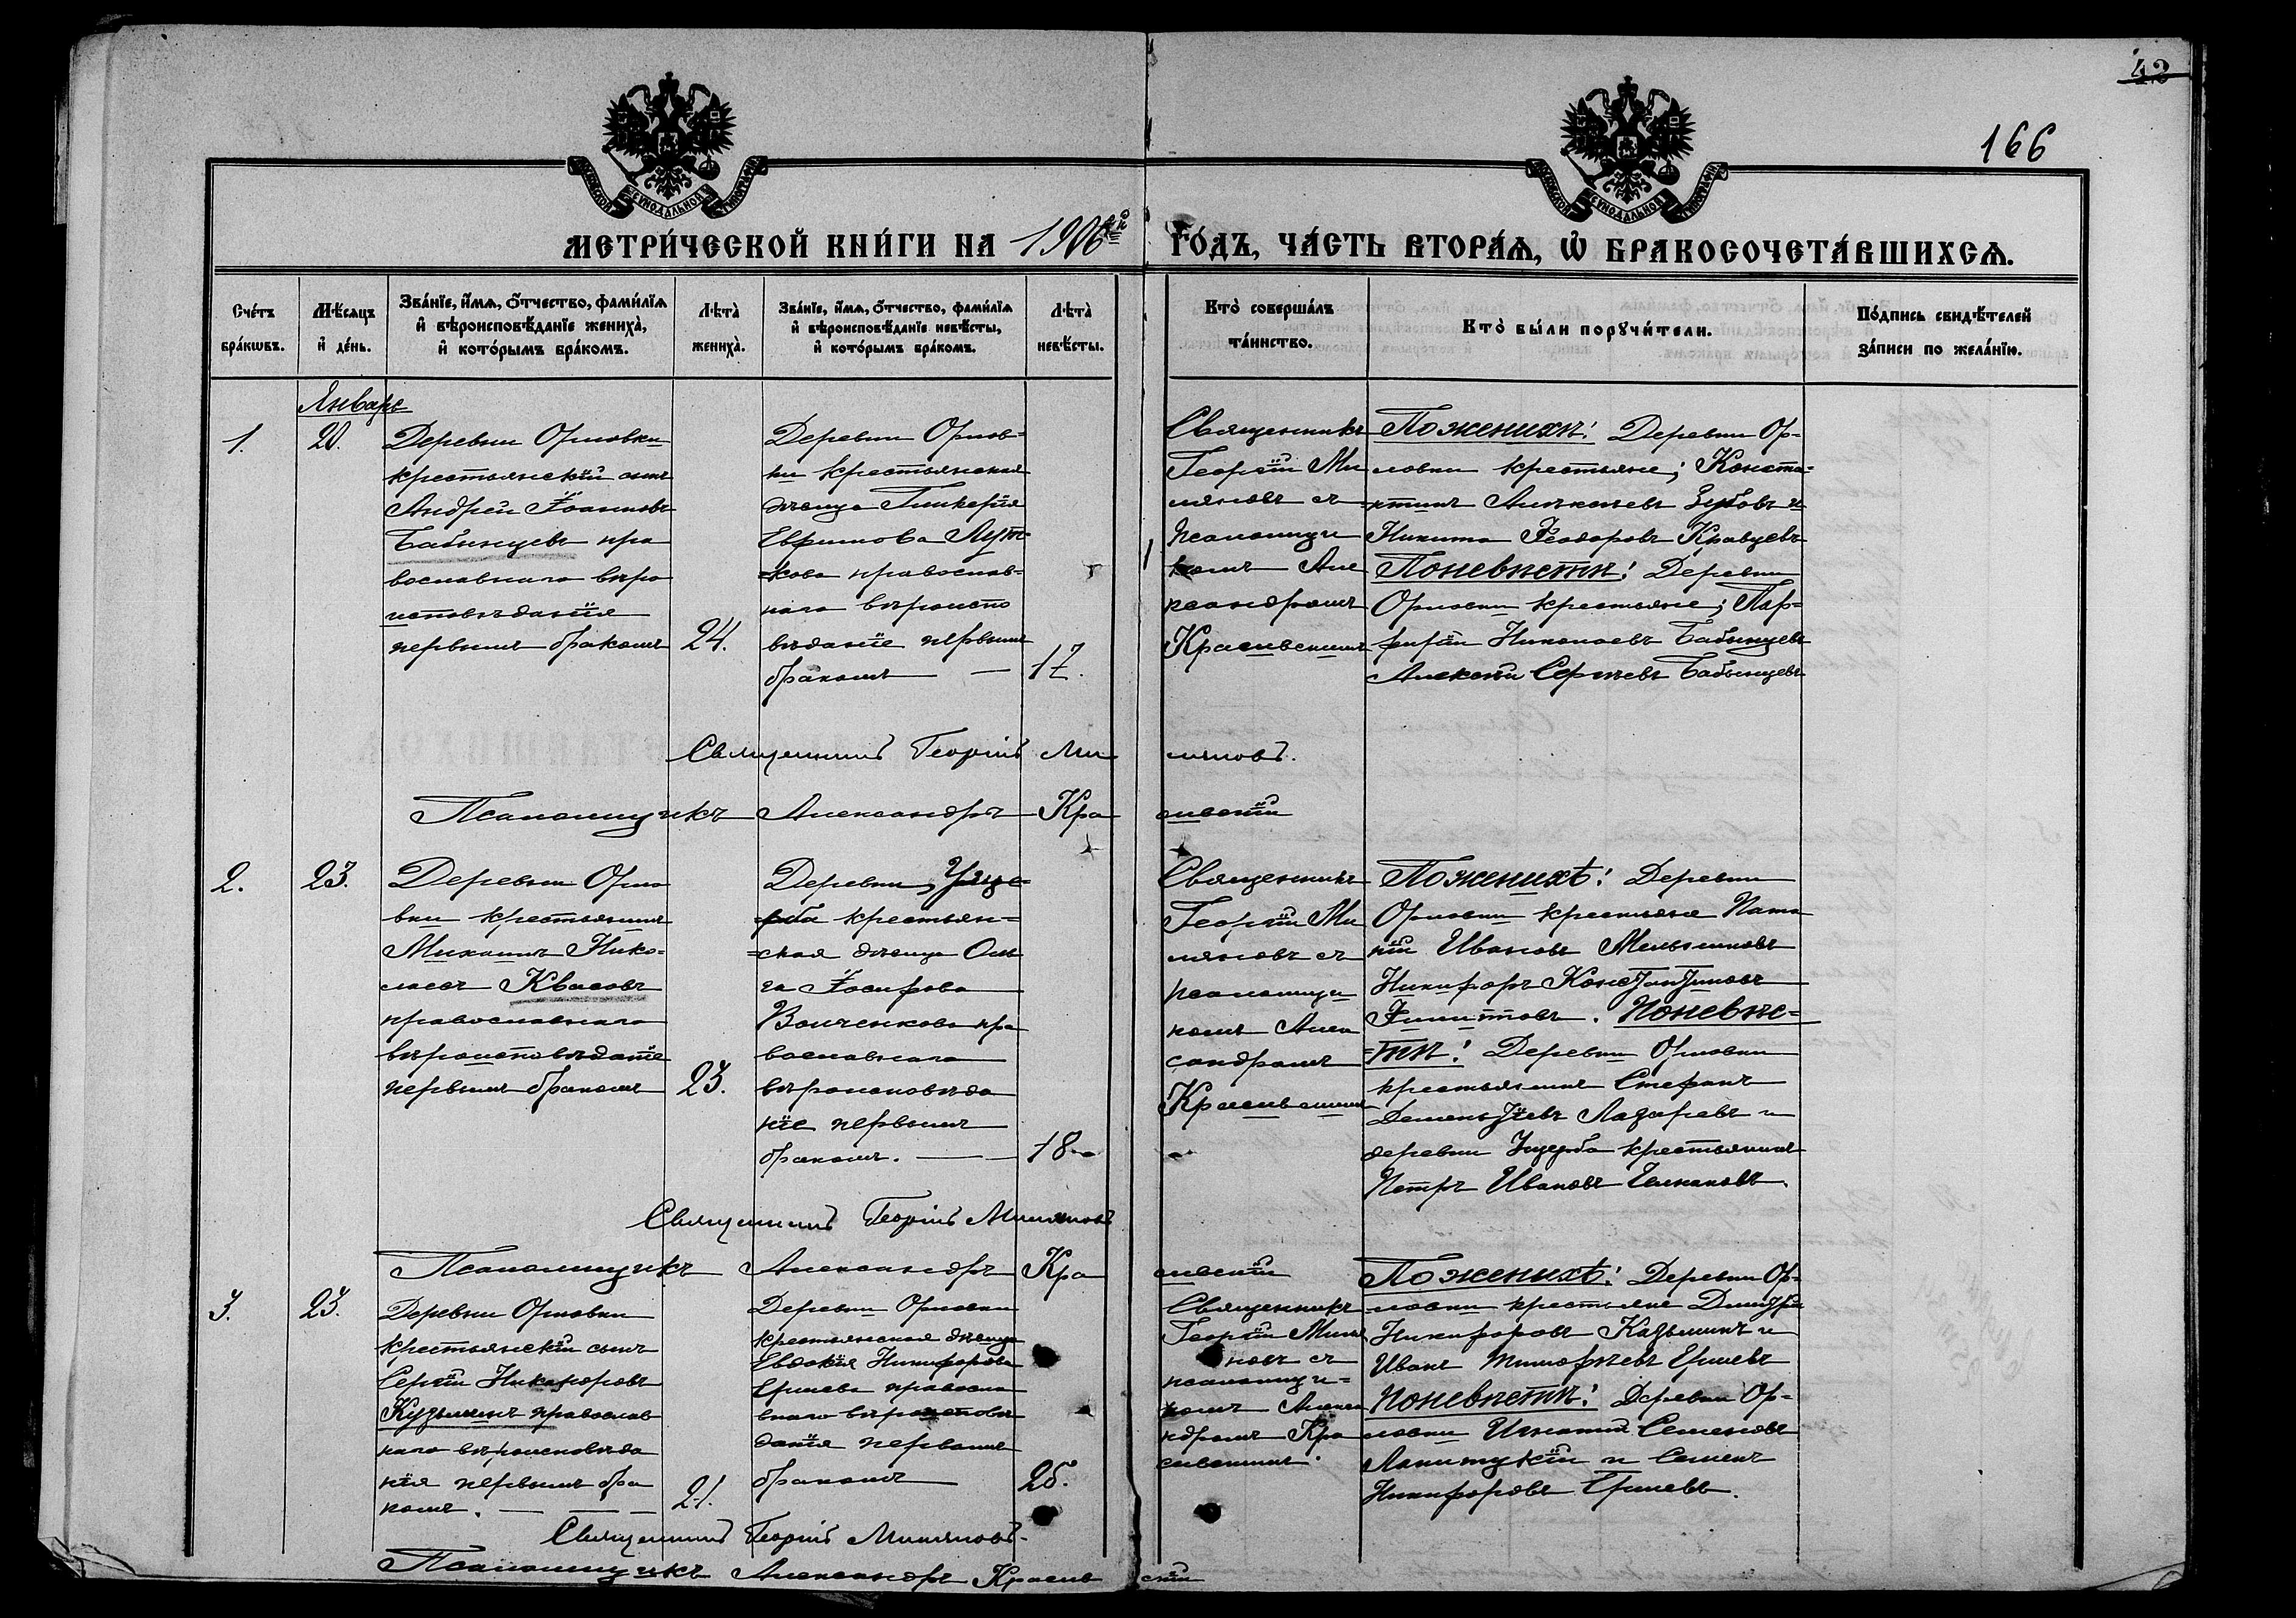 42
166
МЕТРИ́ЧЕСКОЙ КНИ́ГИ НА 1906ой ГО́ДЪ, ЧА́СТЬ ВТОРА́Ѧ, Ѡ҆ БРАКОСОЧЕТА́ВШИХСѦ.
Сче́тъ бра́кѡвъ.
Мѣ́сѧцъ и҆ де́нь.
Зва́нїе, и҆́мѧ, ѻ҆́тчество, фами́лїѧ
и҆ вѣроисповѣ́данїе жениха̀,
и҆ кото́рымъ бра́комъ.
Лѣта̀ жениха̀.
Зва́нїе, и҆́мѧ, ѻ҆́тчество, фами́лїѧ
и҆ вѣроисповѣ́данїе невѣ́сты,
и҆ кото́рымъ бра́комъ.
Лѣта̀ невѣ́сты.
Кто̀ соверша́лъ
та́инство.
Кто̀ бы́ли порꙋчи́тели.
По́дпись свидѣ́телей
за́писи по жела́нїю.
Январь
1.
20.
Деревни Орловки
крестьянскій сынъ
Андрей Іоанновъ
Бабынцевъ пра
вославнаго вѣро
исповѣданія
первымъ бракомъ
24.
Деревни Орлов-
ки крестьянская
дѣвица Гликерія
Ефимова Лут-
=кова православ-
наго вѣроиспо
вѣданіе первымъ
бракомъ —
17.
Священникъ
Георгій Ми
ляновъ съ
псаломщи
комъ Але
ксандромъ
Красивскимъ
По женихѣ: Деревни Ор-
ловки крестьяне; Конста-
нтинъ Алексѣевъ Зубовъ и
Никита Ѳеодоровъ Кравцевъ
По невѣстѣ: Деревни
Орловки крестьяне; Пор-
фирій Николаевъ Бабынцевъ
Алексѣй Сергѣевъ Бабынцевъ
Священникъ Георгій Ми ляновъ.
Псаломщикъ Александръ Кра сивскій
2.
23.
Деревни Орло
вки крестьянинъ
Михаилъ Нико-
лаевъ Квасовъ
православнаго
вѣроисповѣданіе
первымъ бракомъ
23.
Деревни Ущер-
ба крестьян=
=ская дѣвица Оль
га Іосифова
Волченкова пра
вославнаго
вѣроисповѣда
ніе первымъ
бракомъ. —
18
Священникъ
Георгій Ми
ляновъ съ
псаломщи
комъ Алек
сандромъ
Красивскимъ
По женихѣ: Деревни
Орловки крестьяне
Ивановъ Мельниковъ
Никифоръ Константиновъ
Филиповъ. По невѣс=
=тѣ: Деревни Орловки
крестьянинъ Стефанъ
Дементіевъ Лазаревъ и
деревни Ущерба крестьянинъ
Петръ Ивановъ
Священникъ Георгій Миляновъ
Псаломщикъ Александръ Кра сивскій
3.
23.
Деревни Орловки
крестьянскій сынъ
Сергій Никаноровъ
Кузьминъ православ
наго вѣроисповѣда
нія первымъ бра
комъ. — —
21.
Деревни Орловки
крестьянская дѣвица
Евдокія Никифорова
Ершева правосла
внаго вѣроисповѣ
данія первымъ
бракомъ
Священникъ
Георгій Миля
новъ съ
псаломщи=
комъ Алекса
ндромъ Кра
сивскимъ.
По женихѣ: Деревни Ор-
ловки крестьяне Димитрій
Никифоровъ Казьминъ и
Иванъ Тимофѣевъ Ершевъ
По невѣстѣ: Деревни Ор-
ловки Игнатій Семеновъ
и Семенъ
Никифоровъ Ершевъ.
Священникъ Георгій Миляновъ.
Псаломщикъ Александръ Красив скій